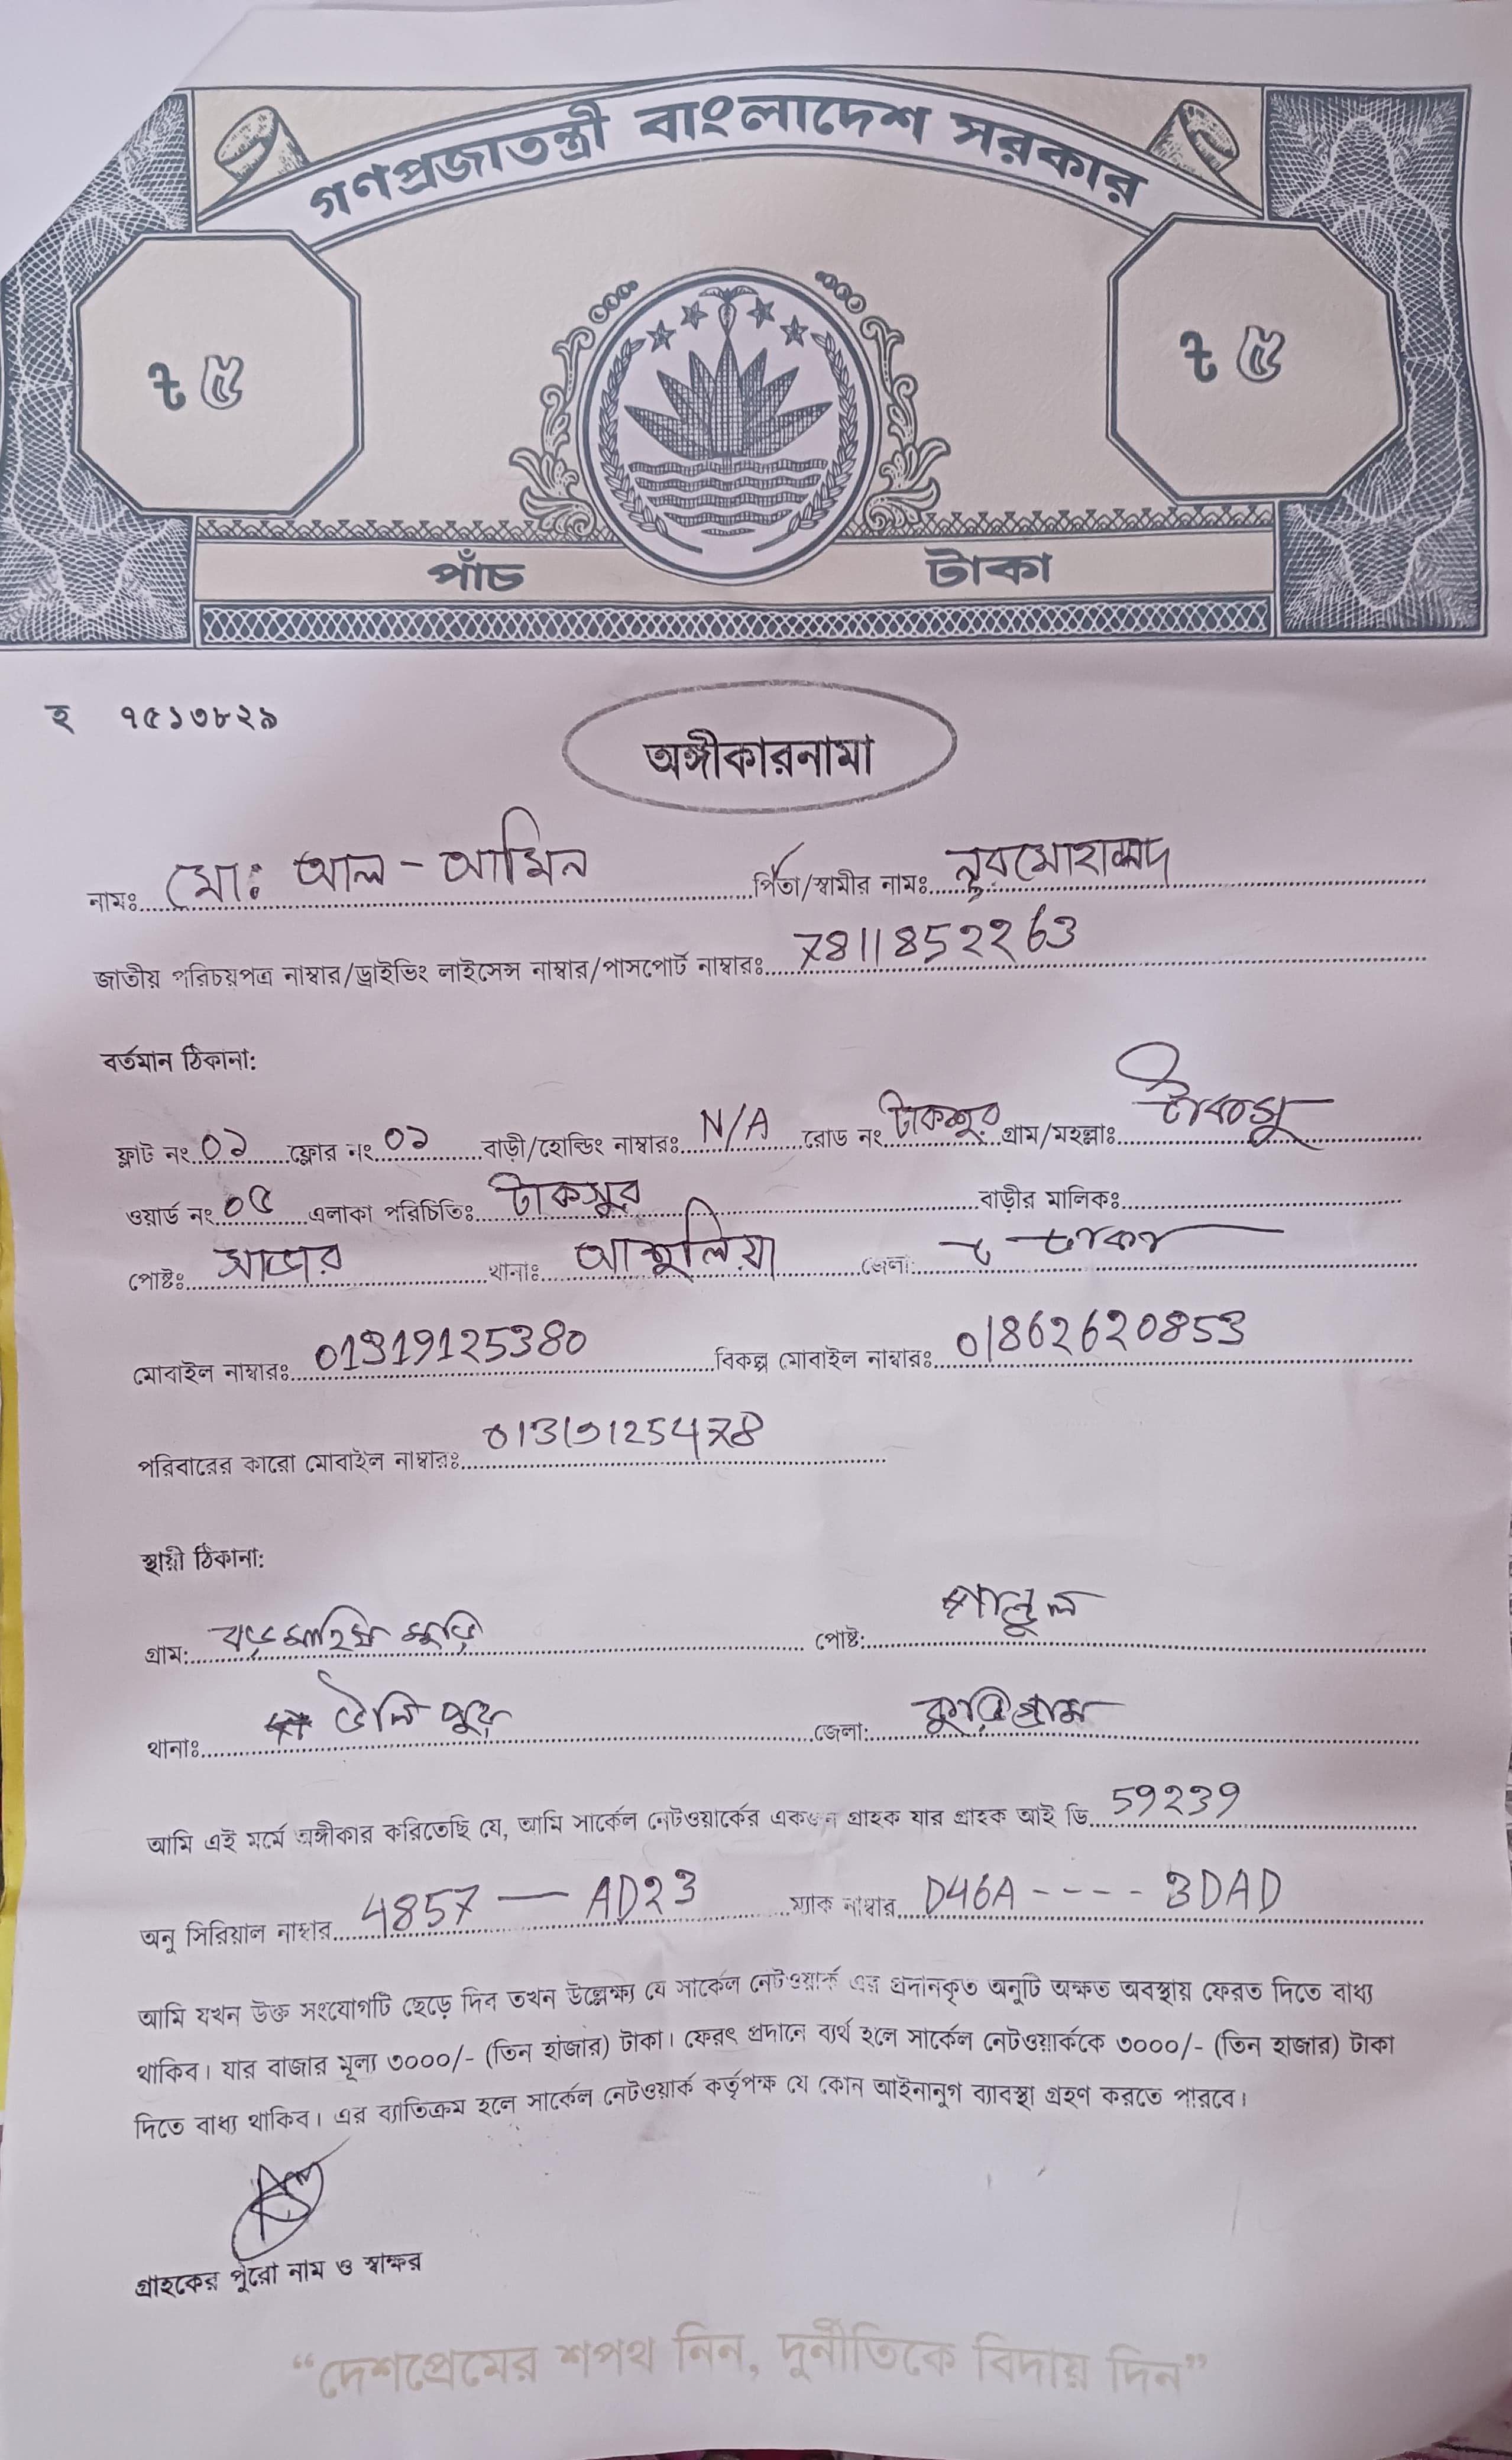 গণপ্রজাতন্ত্রী বাংলাদেশ সরকার
৳ ৫ ৳ ৫
পাঁচ টাকা
হ ৭৫১৩৮২৯
অঙ্গীকারনামা
নামঃ মো: আল-আমিন পিতা/স্বামীর নামঃ নুরমোহাম্মদ
জাতীয় পরিচয়পত্র নাম্বার/ড্রাইভিং লাইসেন্স নাম্বার/পাসপোর্ট নাম্বারঃ 7811852263
বর্তমান ঠিকানা:
ফ্লাট নং ০১ ফ্লোর নং ০১ বাড়ী/হোল্ডিং নাম্বারঃ N/A রোড নং টাকশুর গ্রাম/মহল্লাঃ
ওয়ার্ড নং ০৫ এলাকা পরিচিতিঃ টাকসুর বাড়ীর মালিকঃ
পোষ্টঃ সাভার থানাঃ আশুলিয়া জেলা: ঢাকা
মোবাইল নাম্বারঃ 01319125380 বিকল্প মোবাইল নাম্বারঃ 01862620853
পরিবারের কারো মোবাইল নাম্বারঃ 01319125478
স্থায়ী ঠিকানা:
গ্রাম: পোষ্ট: পান্ডুল
থানাঃ উলিপুর জেলা: কুরিগ্রাম
আমি এই মর্মে অঙ্গীকার করিতেছি যে, আমি সার্কেল নেটওয়ার্কের একজন গ্রাহক যার গ্রাহক আই ডি 59239
অনু সিরিয়াল নাম্বার 4857 — AD23 ম্যাক নাম্বার D46A - - - - 3DAD
আমি যখন উক্ত সংযোগটি ছেড়ে দিব তখন উল্লেক্ষ্য যে সার্কেল নেটওয়ার্ক এর প্রদানকৃত অনুটি অক্ষত অবস্থায় ফেরত দিতে বাধ্য
থাকিব। যার বাজার মূল্য ৩০০০/- (তিন হাজার) টাকা। ফেরৎ প্রদানে ব্যর্থ হলে সার্কেল নেটওয়ার্ককে ৩০০০/- (তিন হাজার) টাকা
দিতে বাধ্য থাকিব। এর ব্যাতিক্রম হলে সার্কেল নেটওয়ার্ক কর্তৃপক্ষ যে কোন আইনানুগ ব্যাবস্থা গ্রহণ করতে পারবে।
গ্রাহকের পুরো নাম ও স্বাক্ষর
“দেশপ্রেমের শপথ নিন, দুর্নীতিকে বিদায় দিন”